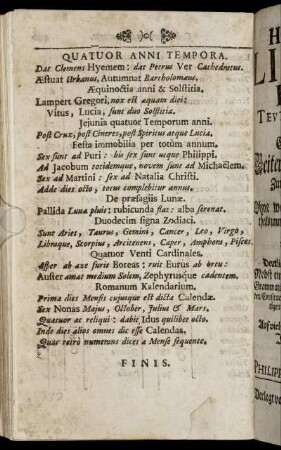 QUATUOR ANNI TEMPORA.
Dat Clemens Hyemem: dat Petrus Ver Cathedratus.
Æstuat Urbanus, Autumnat Bartholomæus.
Æquinoctia anni & Solstitia.
Lampert Gregori, nox est æquam diei:
Vitus, Lucia, sunt duo Solstitia.
Jejunia quatuor Temporum anni.
Post Crux, post Cineres, post Spiritus atque Lucia.
Festa immobilia per totum annum.
Sex sunt ad Puri: bis sex sunt usque Philippi.
Ad Jacobum totidemque, novem sunt ad Michaëlem.
Sex ad Martini: sex ad Natalia Christi.
Adde dies octo, totus complebitur annus.
De præsagiis Lunæ.
Pallida Luna pluit; rubicunda flat: alba serenat.
Duodecim signa Zodiaci.
Sunt Aries, Taurus, Gemini, Cancer, Leo, Virgo,
Libraque, Scorpius, Arcitenens, Caper, Amphora, Pisces.
Quatuor Venti Cardinales.
Asper ab axe furis Boreas: ruit Eurus ab ortu:
Auster amat medium Solem, Zephyrusque cadentem.
Romanum Kalendarium.
Prima dies Mensis cujusque est dicta Calendæ.
Sex Nonas Majus, October, Julius & Mars,
Quatuor at reliqui: dabit Idus quilibet octo.
Inde dies alios omnes dic esse Calendas.
Quas retrò numerans dices a Mense sequente.
FINIS.